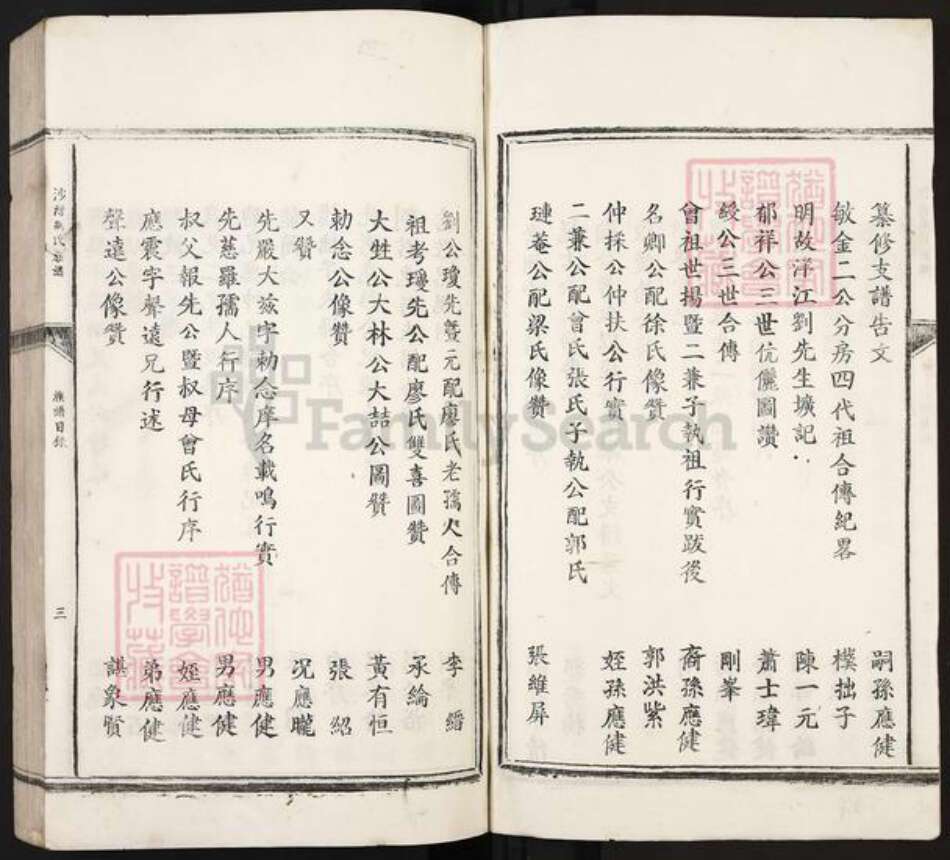 纂修支譜告文 嗣孫應健
敏金二公分房四代祖合傳紀畧 樸拙子
明故洋江劉先生壙記 陳一元
郁祥公三世伉儷圖讚 蕭士瑋
綬公三世合傳 剛峯
曾祖世揚暨二兼子執祖行實跋後 裔孫應健
名卿公配徐氏像贊 郭洪紫
仲採公仲扶公行實 姪孫應健
二兼公配曾氏張氏子執公配郭氏
璉菴公配梁氏像贊 張維屏
劉公瓊先暨元配廖氏老孺人合傳 李縉
祖考瓊先公配廖氏雙喜圖贊 承綸
大甡公大林公大喆公圖贊 黃有恒
勅念公像贊 張紹
又贊 况應曨
先嚴大玆字勅念庠名載鳴行實 男應健
先慈羅孺人行序 男應健
叔父報先公暨叔母曾氏行序 姪應健
應震字聲遠兄行述 弟應健
聲遠公像贊 諶象賢
沙村劉氏族譜
族譜目錄
三
FamilySearch